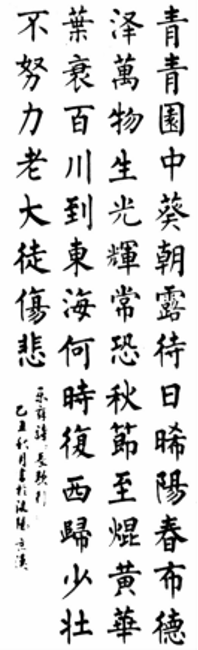 青青園中葵朝露待日晞陽春布德
泽萬物生光輝常恐秋節至焜黃華
葉衰百川到東海何時復西歸少壯
不努力老大徒傷悲
乐府詩長歌行
乙丑秋月書於